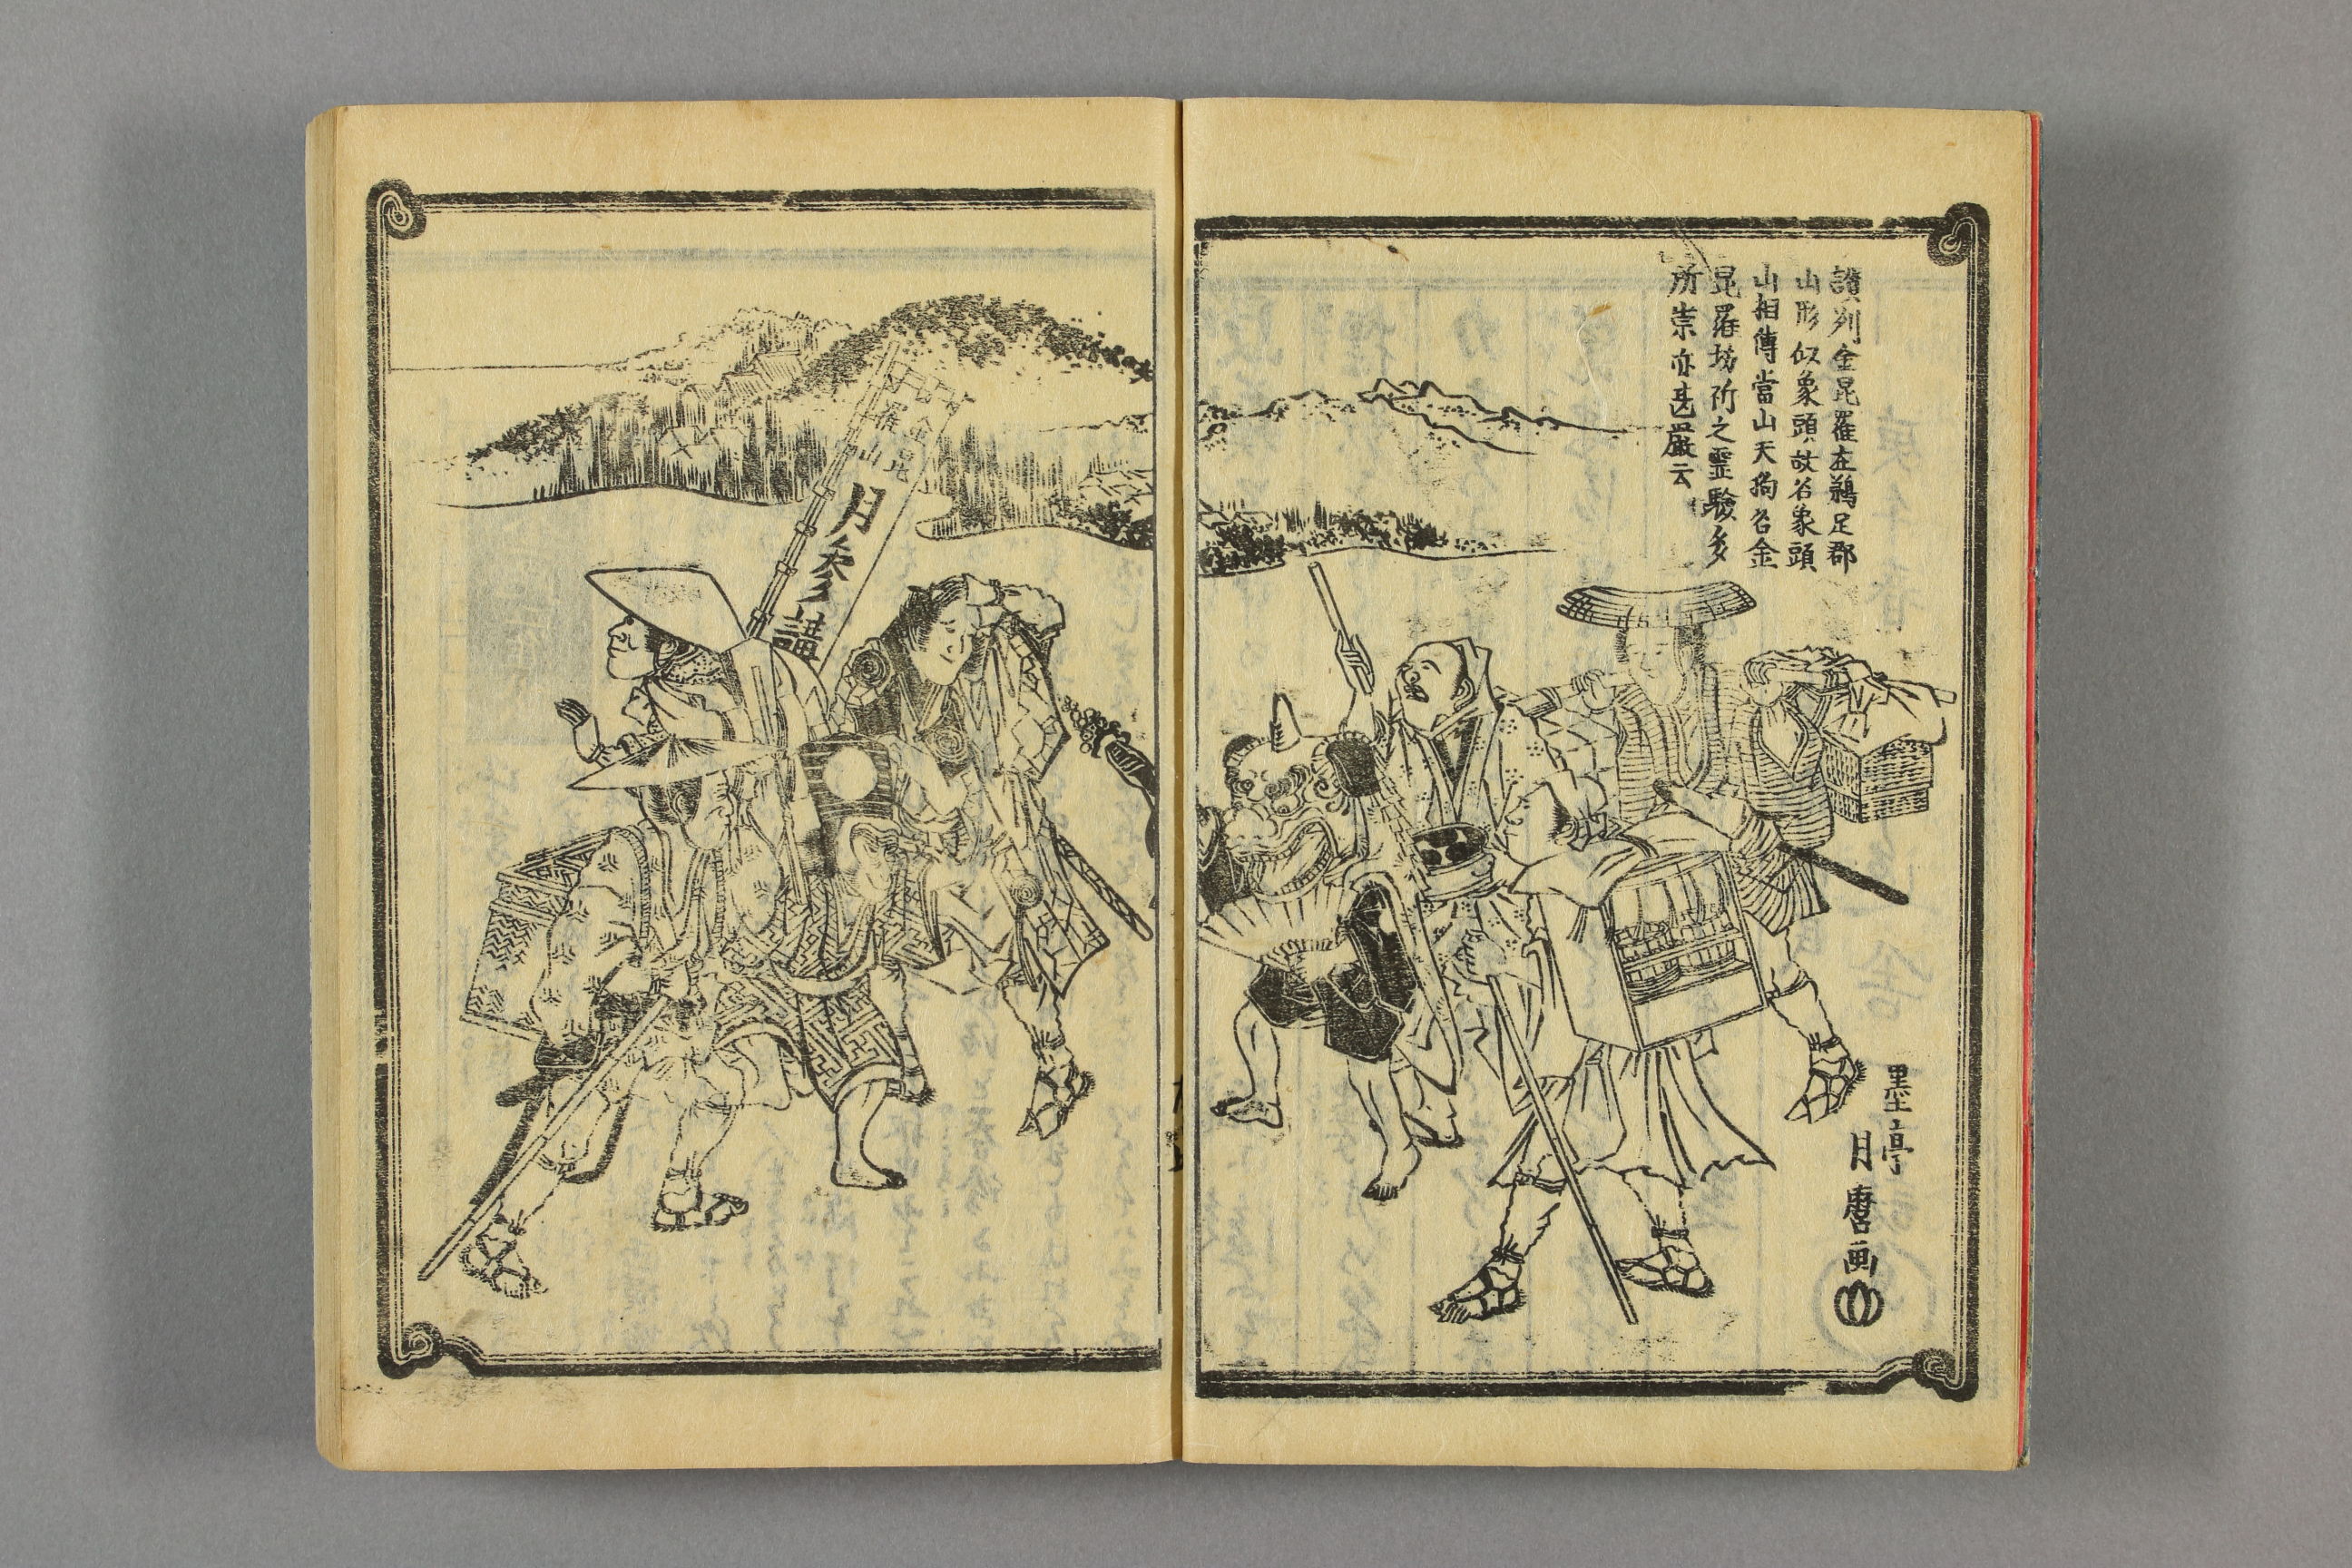 讃列金毘羅在鵜足郡
山形似象頭故名象頭
山相傳當山天狗名金
毘羅坊祈之霊験多
所崇亦甚嚴云
墨亭
月麿画
金毘
羅山
月参講